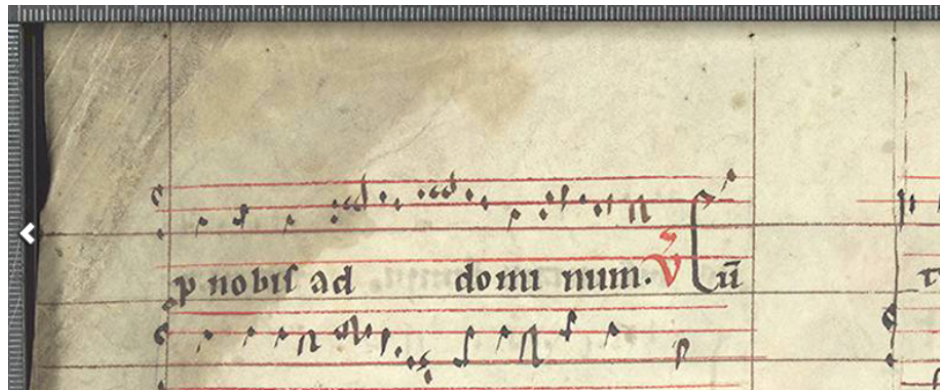 p nobis ad domi num. V ū